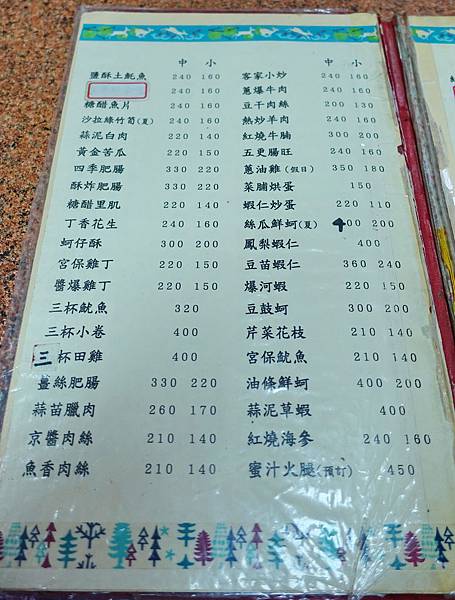 中 小
鹽酥土魠魚 240 160
240 160
糖醋魚片 240 160
沙拉綠竹筍(夏) 240 160
蒜泥白肉 220 140
黃金苦瓜 220 150
四季肥腸 330 220
酥炸肥腸 330 220
糖醋里肌 220 140
丁香花生 240 160
蚵仔酥 300 200
宮保雞丁 220 150
醬爆雞丁 220 150
三杯魷魚 320
三杯小卷 400
三杯田雞 400
薑絲肥腸 330 220
蒜苗臘肉 260 170
京醬肉絲 210 140
魚香肉絲 210 140
中 小
客家小炒 240 160
蔥爆牛肉 240 160
豆干肉絲 200 130
熱炒羊肉 240 160
紅燒牛腩 300 200
五更腸旺 240 160
蔥油雞(假日) 350 180
菜脯烘蛋 150
蝦仁炒蛋 220 110
絲瓜鮮蚵(夏) 400 200
鳳梨蝦仁 400
豆苗蝦仁 360 240
爆河蝦 220 150
豆鼓蚵 300 200
芹菜花枝 210 140
宮保魷魚 210 140
油條鮮蚵 400 200
蒜泥草蝦 400
紅燒海參 240 160
蜜汁火腿(預訂) 450